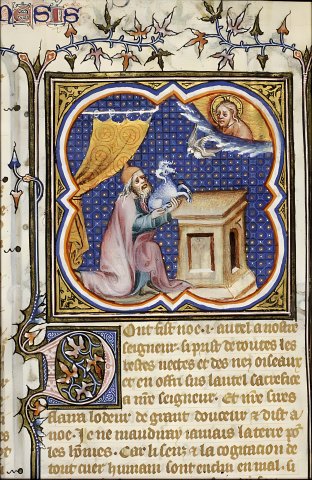 nesis
Dont fist noe .i. autel a nostre
seigneur. si prist de toutes les
bestes nectes et des nez oiseaux
et en offri sus lautel sacrefice
a nre seigneur. Et nre sires
flaira lodeur de grant douceur & dist a
noe. Je ne maudiray iamais la terre por
les homes. Car li sens & la cogitacion de
tout cuer humain sont enclin en mal. si